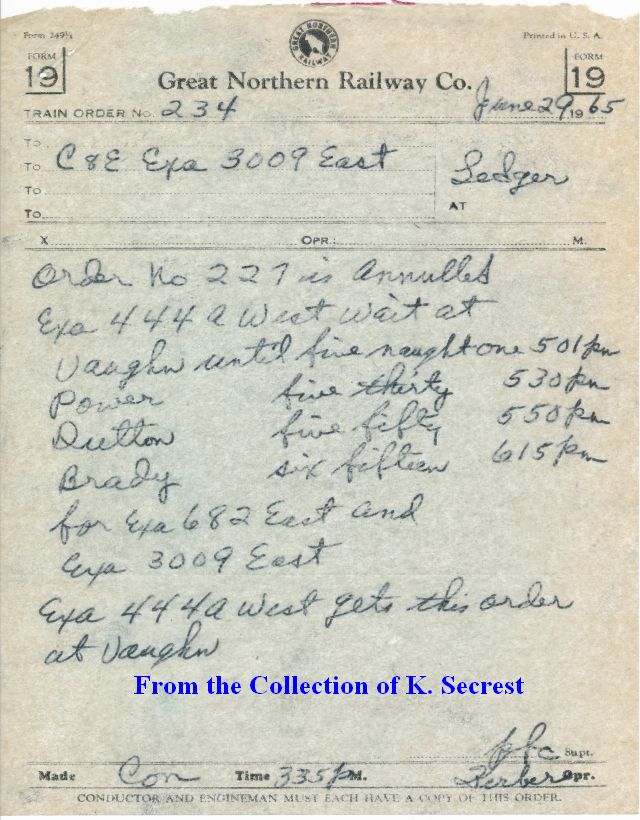 Form 249½
Printed in U. S. A.
GREAT NORTHERN RAILWAY
FORM 19
FORM 19
Great Northern Railway Co.
TRAIN ORDER No. 234
June 29, 1965
To
To C&E Exa 3009 East
To
To
Ledger
AT
X OPR.: M.
Order No 227 is Annulled
Exa 444A West Wait at
Vaughn until five naught one 501pm
Power five thirty 530pm
Dutton five fifty 550pm
Brady six fifteen 615pm
for Exa 682 East and
Exa 3009 East
Exa 444A West gets this order
at Vaughn
From the Collection of K. Secrest
Supt.
Made Com Time 335PM. Opr.
CONDUCTOR AND ENGINEMAN MUST EACH HAVE A COPY OF THIS ORDER.